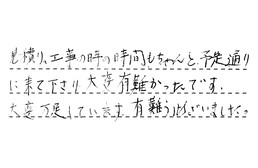 見積り、工事の時の時間もちゃんと、予定通り
に来て下さり、大変有難かったです。
大変満足しています。有難うございました。